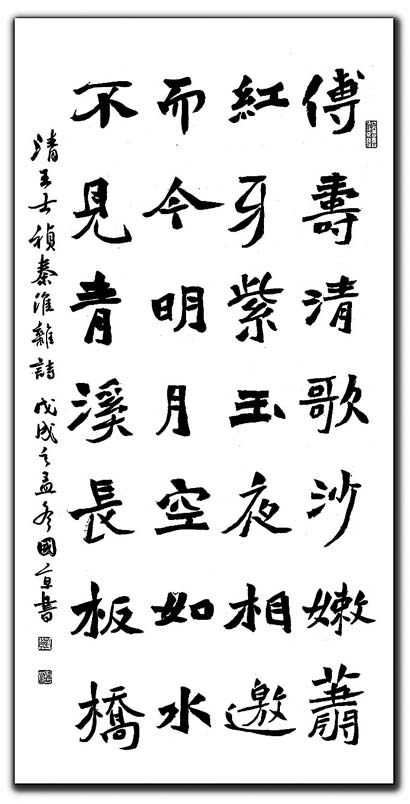 傅壽清歌沙嫩蕭
紅牙紫玉夜相邀
而今明月空如水
不見青溪長板橋
清王士禎秦淮雜詩戊戌之孟冬國京書